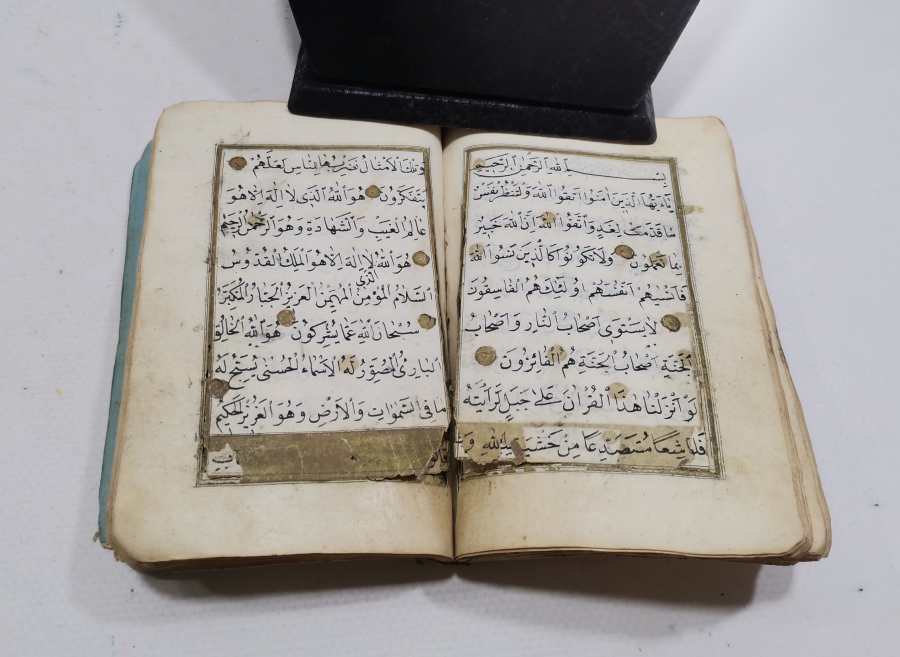 بِسْمِ اللهِ الرَّحْمٰنِ الرَّحِيمِ
يَاءَيُّهَا الَّذِينَ اٰمَنُوا اتَّقُوا اللهَ وَلْتَنْظُرْ نَفْسٌ
مَا قَدَّمَتْ لِغَدٍ وَاتَّقُوا اللهَ اِنَّ اللهَ خَبِيرٌ
بِمَا تَعْمَلُونَ وَلَا تَكُونُوا كَالَّذِينَ نَسُوا اللهَ
فَاَنْسٰيهُمْ اَنْفُسَهُمْ اُولٰئِكَ هُمُ الْفَاسِقُونَ
لَا يَسْتَوِى اَصْحَابُ النَّارِ وَاَصْحَابُ
الْجَنَّةِ اَصْحَابُ الْجَنَّةِ هُمُ الْفَائِزُونَ
لَوْ اَنْزَلْنَا هٰذَا الْقُرْاٰنَ عَلٰى جَبَلٍ لَرَاَيْتَهُ
خَاشِعًا مُتَصَدِّعًا مِنْ خَشْيَةِ اللهِ
وَتِلْكَ الْاَمْثَالُ نَضْرِبُهَا لِلنَّاسِ لَعَلَّهُمْ
يَتَفَكَّرُونَ هُوَ اللهُ الَّذِى لَا اِلٰهَ اِلَّا هُوَ
عَالِمُ الْغَيْبِ وَالشَّهَادَةِ وَهُوَ الرَّحْمٰنُ الرَّحِيمُ
هُوَ اللهُ الَّذِى لَا اِلٰهَ اِلَّا هُوَ الْمَلِكُ الْقُدُّوسُ
السَّلَامُ الْمُؤْمِنُ الْمُهَيْمِنُ الْعَزِيزُ الْجَبَّارُ الْمُتَكَبِّرُ
سُبْحَانَ اللهِ عَمَّا يُشْرِكُونَ هُوَ اللهُ الْخَالِقُ
الْبَارِئُ الْمُصَوِّرُ لَهُ الْاَسْمَاءُ الْحُسْنٰى يُسَبِّحُ لَهُ
مَا فِى السَّمٰوَاتِ وَالْاَرْضِ وَهُوَ الْعَزِيزُ الْحَكِيمُ